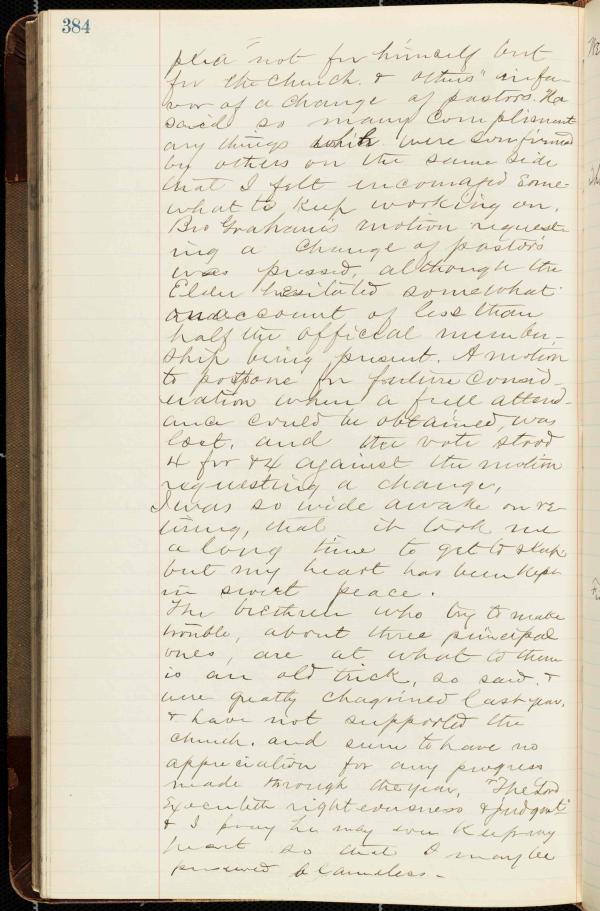 384
plea "not for himself but
for the church. & others" in fa-
vor of a change of pastors. He
said so many compliment
ary things which were confirmed
by others on the same side
that I felt encouraged some-
what to keep working on.
Bro Graham's motion request-
ing a change of pastors
was pressed, although the
Elder hesitated somewhat
on account of less than
half the official member-
ship being present. A motion
to postpone for future consid-
eration when a full attend-
ance could be obtained, was
lost. and the vote stood
4 for & 4 against the motion
requesting a change.
I was so wide awake on re-
tiring, that it took me
a long time to get to sleep
but my heart has been kept
in sweet peace.
The brethren who try to make
trouble, about three principal
ones, are at what to them
is an old trick, so said. &
were greatly chagrined last year.
& have not supported the
church. and seem to have no
appreciation for any progress
made through the year. "The Lord
executeth righteousness & judgmt"
& I pray he may so keep my
heart so that I may be
preserved blameless -